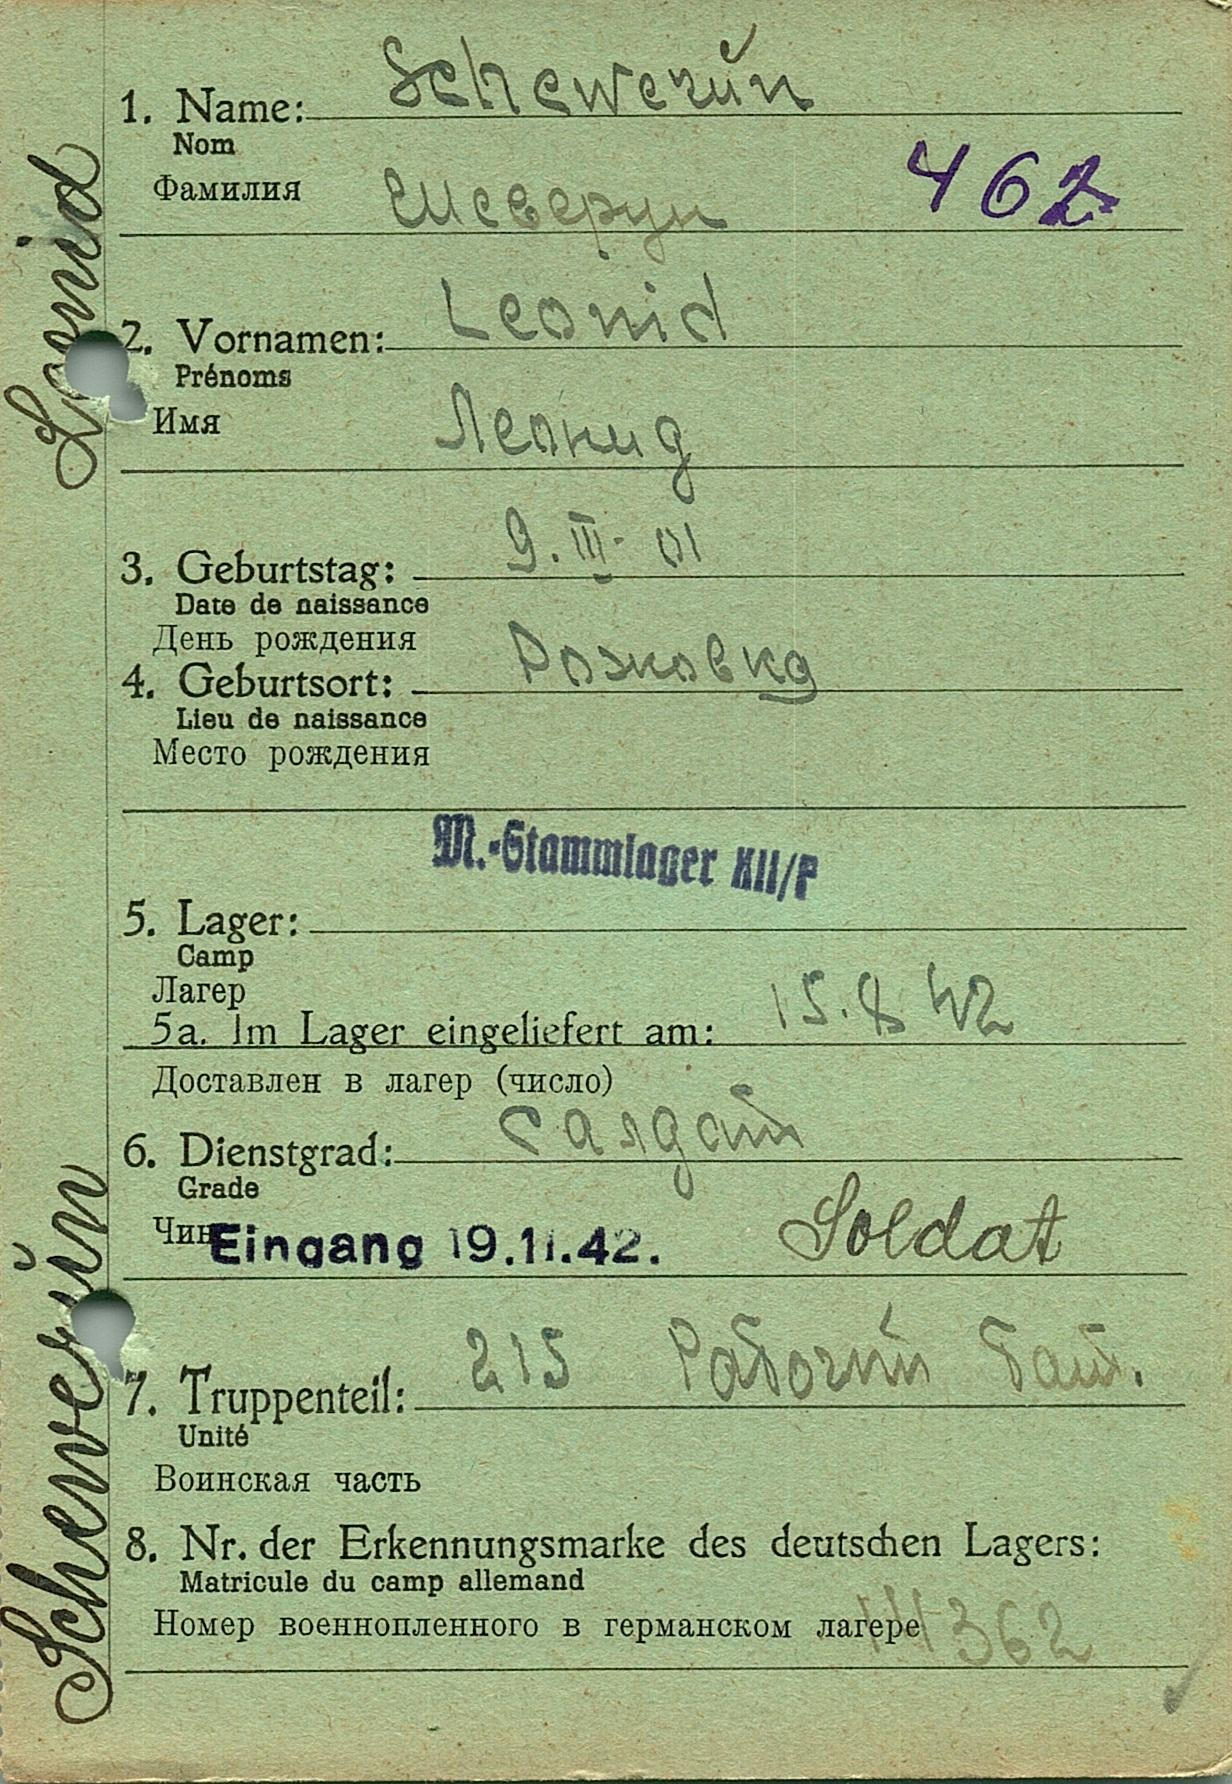 1. Name: Schewerŭn
Nom
Фамилия Шеверун
462
2. Vornamen: Leonid
Prénoms
Имя Леонид
3. Geburtstag: 9. III. 01
Date de naissance
День рождения
4. Geburtsort: Рожковка
Lieu de naissance
Место рождения
M.-Stammlager XII/F
5. Lager:
Camp
Лагер
5a. Im Lager eingeliefert am: 15. 8 42
Доставлен в лагер (число)
6. Dienstgrad: салдат
Grade
Чин Soldat
Eingang 19.11.42.
7. Truppenteil: 215 Рабочий бат.
Unité
Воинская часть
8. Nr. der Erkennungsmarke des deutschen Lagers:
Matricule du camp allemand
Номер военнопленного в германском лагере
Schewerŭn Leonid